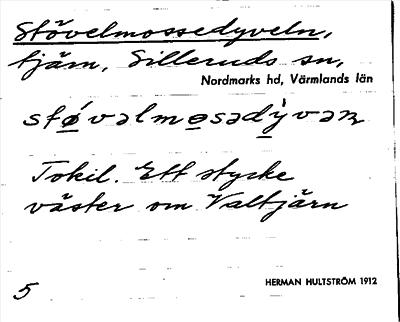 Stövelmossedyveln,
tjärn, Silleruds sn,
Nordmarks hd, Värmlands län
støvəlmosədỳvəɳ
Tokil. Ett stycke
väster om Valtjärn
5
HERMAN HULTSTRÖM 1912